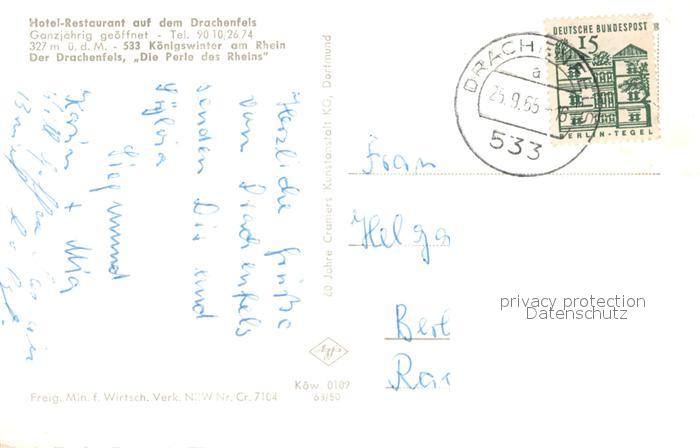 Hotel-Restaurant auf dem Drachenfels
Ganzjährig geöffnet - Tel. 90 10/26 74
327 m ü. d. M. - 533 Königswinter am Rhein
Der Drachenfels, „Die Perle des Rheins"
DEUTSCHE BUNDESPOST
15
BERLIN-TEGEL
DRACHENFELS
a
25.9.65
533
Herzliche Grüße
vom Drachenfels
senden Dir
Sylvia
Siegmund
Karin +
60 Jahre Cramers Kunstanstalt KG, Dortmund
Frau
Helga
Berl
privacy protection
Datenschutz
Köw 0109
63/50
Freig. Min. f. Wirtsch. Verk. NRW Nr. Cr. 7104